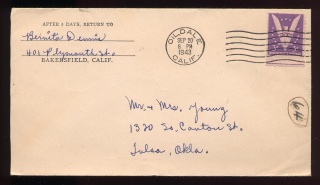 AFTER 5 DAYS, RETURN TO
Bernita Dennis
401 Plymouth St.
BAKERSFIELD, CALIF.
OILDALE
SEP 20
6 PM
1943
CALIF.
Mr & Mrs. Young
1320 So. Canton St.
Tulsa, Okla.